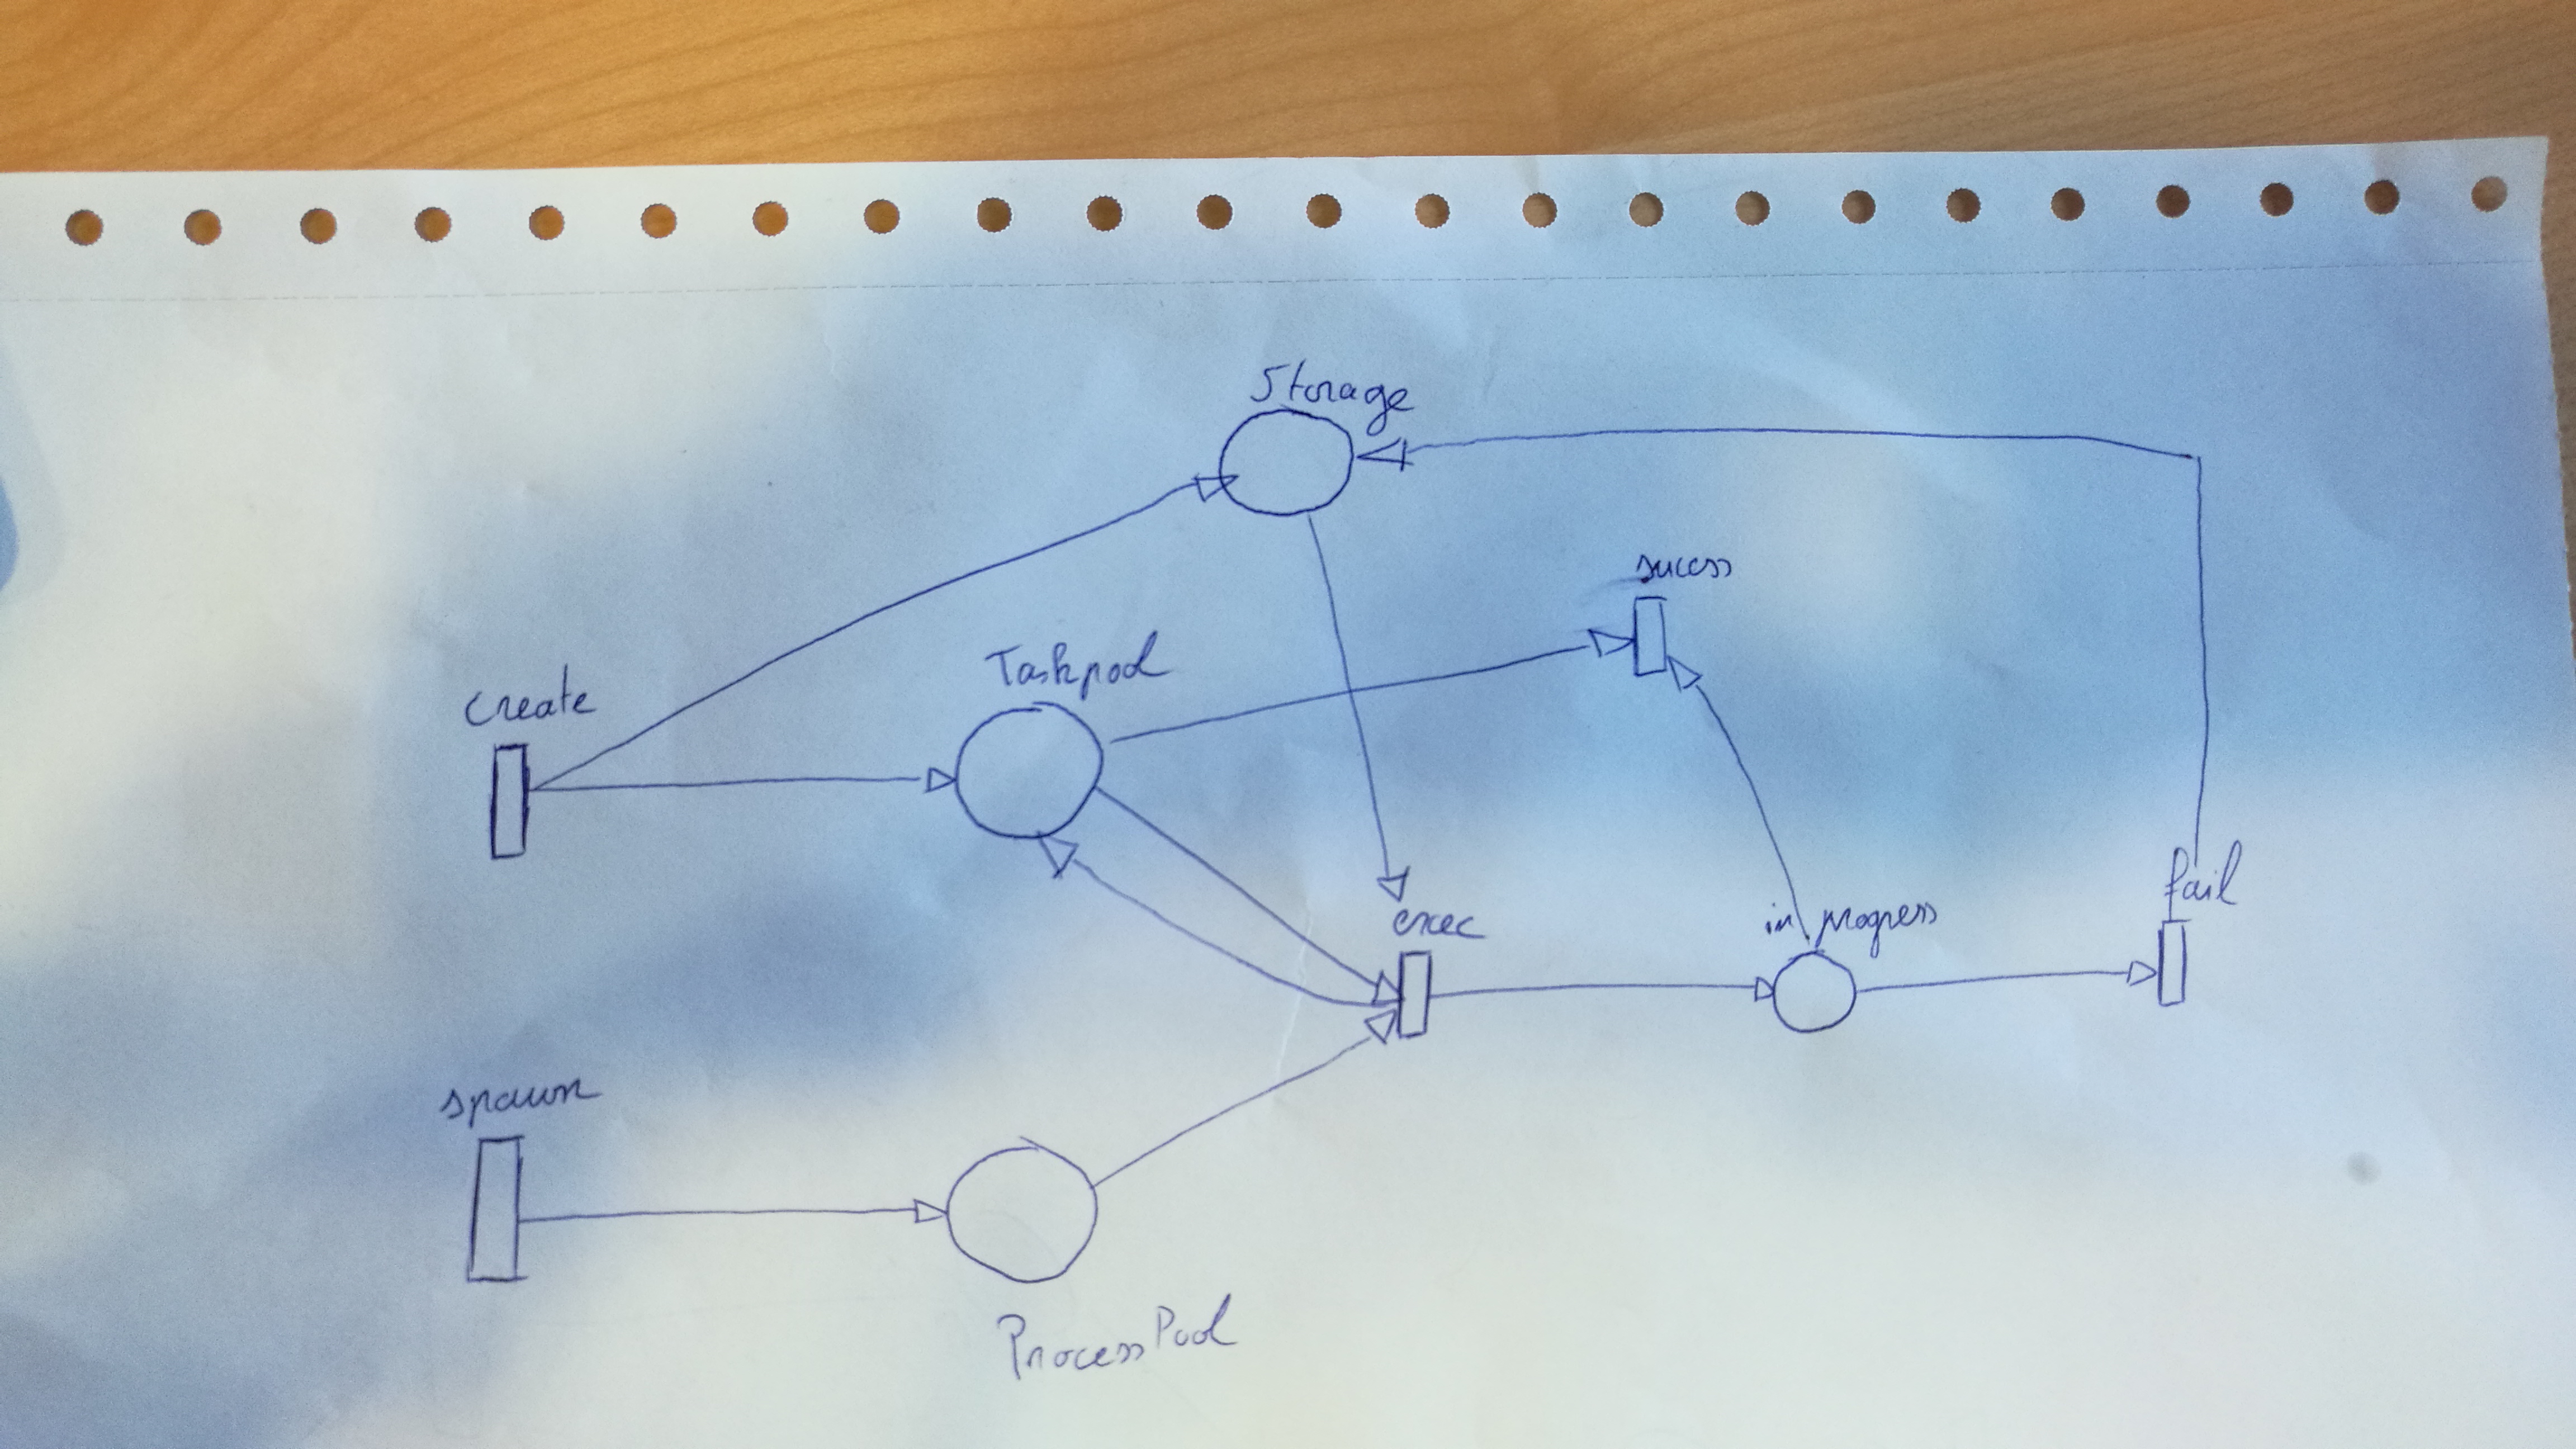 Storage
sucess
Taskpool
create
exec
in progress
fail
spawn
ProcessPool